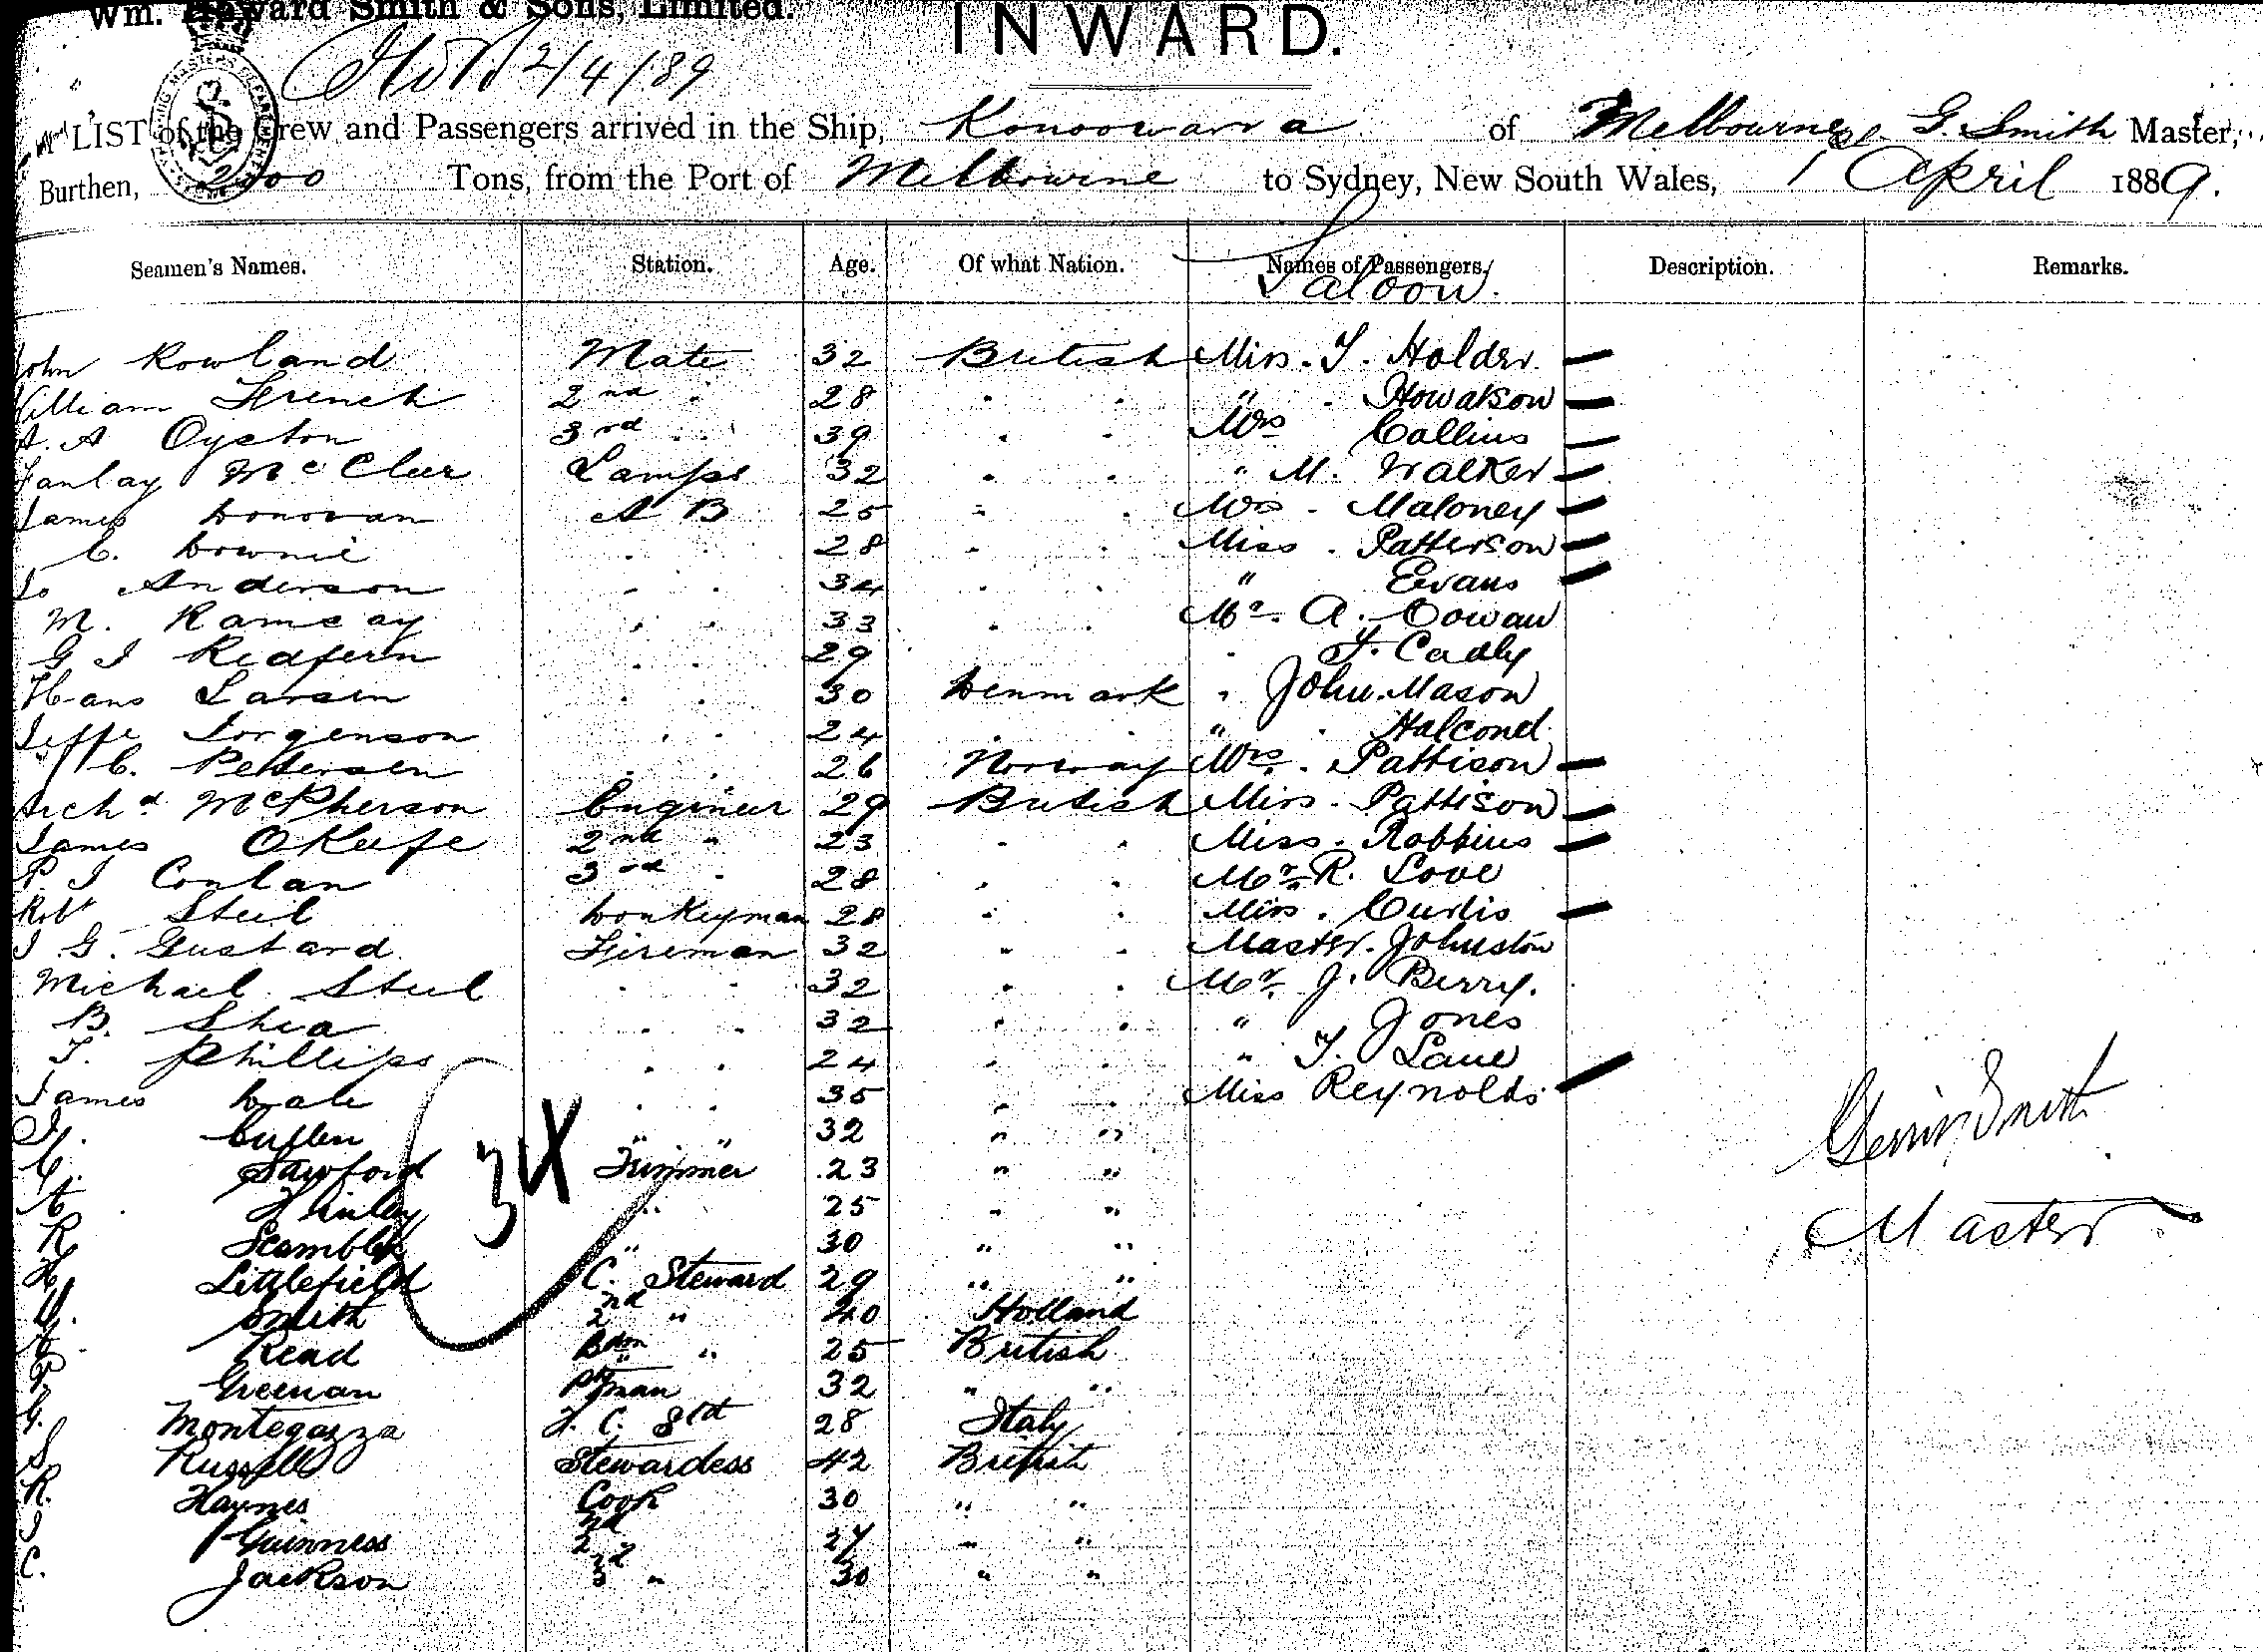 Wm. Howard Smith & Sons, Limited.
INWARD.
2/4/89
LIST of the Crew and Passengers arrived in the Ship, Konoowarra of Melbourne G. Smith Master,
Burthen, Tons, from the Port of Melbourne to Sydney, New South Wales, 1 April 1889.
Seamen's Names. Station. Age. Of what Nation. Names of Passengers. Description. Remarks.
Saloon.
John Rowland Mate 32 British Miss. Holder.
William French 2nd " 28 " " " Howatson
A. A Oyston 3rd " 39 " " Mrs Collins
McClure Lamps 32 " " " M. Walker
James Donovan A B 25 " " Mrs. Maloney
C. Downie " " 28 " " Miss. Patterson
Jo Anderson " " 34 " " " Evans
M. Ramsay " " 33 " " Mr. A. Cowan
G J Redfern " " 29 " F. Cadly
Hans Larsen " " 30 Denmark " John. Mason
Jeppe Jorgenson " " 24 " " " Halcond
C. Pettersen " " 26 Norway Mrs. Pattison
Archd McPherson Engineer 29 British Miss. Pattison
James OKeefe 2nd " 23 " " Miss. Robbins
P. J Conlan 3rd " 28 " " Mr. R. Love
Robt Steel Donkeyman 28 " " Miss. Curtis
J. G. Gustard Fireman 32 " " Master. Johnston
Michael Steel " " 32 " " Mr. J. Berry.
B. Shea " " 32 " " " Jones
T. Phillips " " 24 " " " T. Lane
James Dale " " 35 " " Miss Reynolds.
J. Cullen " " 32 " "
C. Sawford Trimmer 23 " "
34
Hinley " 25 " "
R Scambler " 30 " "
H. Littlefield C. Steward 29 " "
Smith 2nd " 40 Holland
Read " 25 British
P Greenan P'man 32 " "
G. Montegazza F. C. Std 28 Italy
S Russell Stewardess 42 British
R. Haynes Cook 30 " "
J Guinness 2nd 27 " "
C. Jackson 3rd " 30 " "
Smith
Master